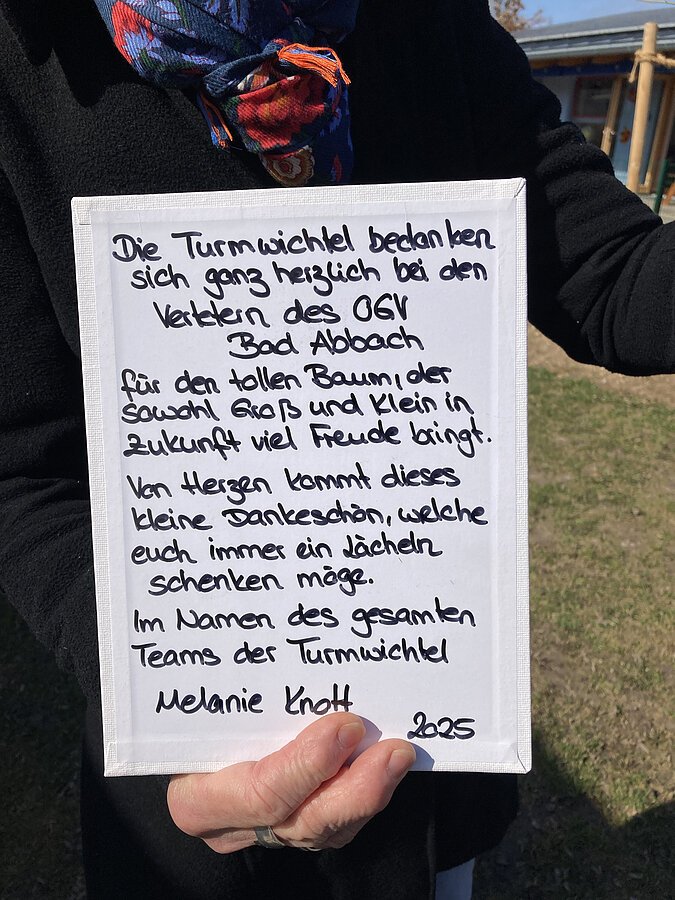 Die Turmwichtel bedanken
sich ganz herzlich bei den
Vertetern des OGV
Bad Abbach
für den tollen Baum, der
sowohl Groß und Klein in
Zukunft viel Freude bringt.
Von Herzen kommt dieses
kleine Dankeschön, welche
euch immer ein Lächeln
schenken möge.
Im Namen des gesamten
Teams der Turmwichtel
Melanie Knott
2025